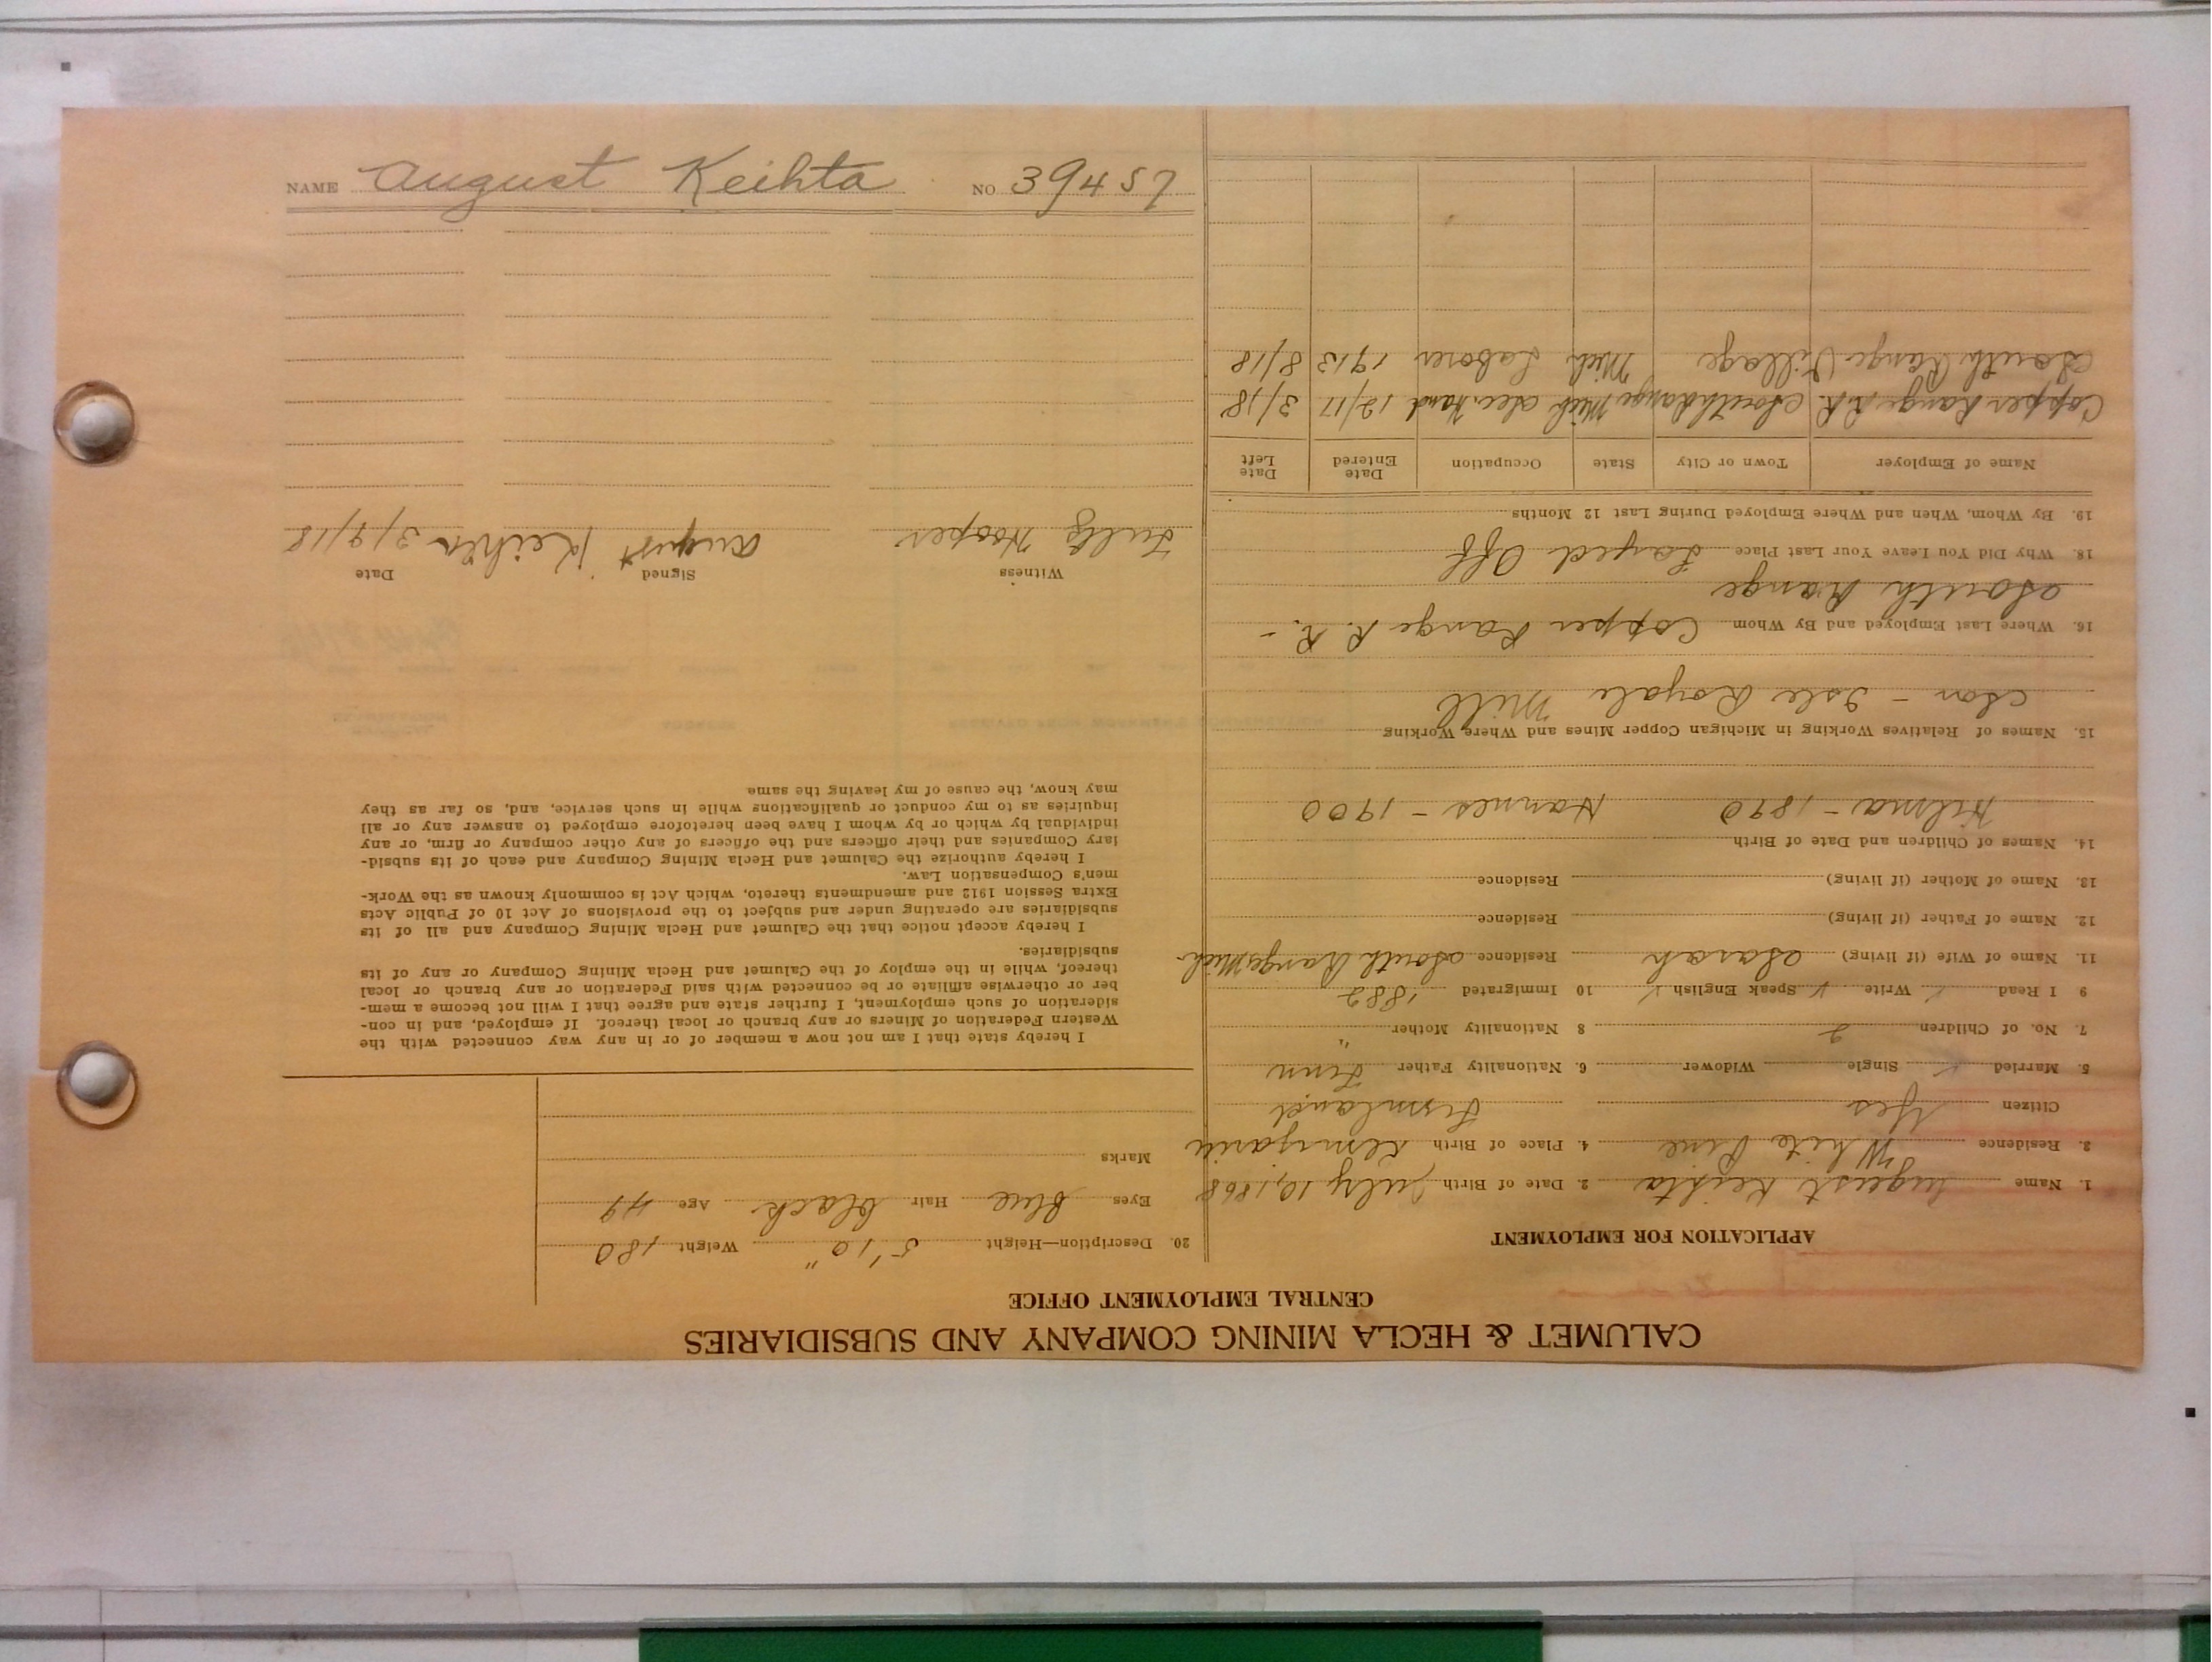 CALUMET & HECLA MINING COMPANY AND SUBSIDIARIES
CENTRAL EMPLOYMENT OFFICE
APPLICATION FOR EMPLOYMENT
1. Name August Keihta 2. Date of Birth July 10, 1868
3. Residence White Pine 4. Place of Birth
Citizen Yes Finnland
5. Married ✓ Single Widower 6. Nationality Father Finn
7. No. of Children 2 8 Nationality Mother "
9 I Read ✓ Write ✓ Speak English ✓ 10 Immigrated 1882
11. Name of Wife (if living) Sarah Residence South Range Mich
12. Name of Father (if living) Residence
13. Name of Mother (if living) Residence
14. Names of Children and Date of Birth
Hilma - 1890 Hannes - 1900
15. Names of Relatives Working in Michigan Copper Mines and Where Working
Son - Isle Royale Mill
16. Where Last Employed and By Whom Copper Range R. R. -
South Range
18. Why Did You Leave Your Last Place Layed Off
19. By Whom, When and Where Employed During Last 12 Months
Name of Employer Town or City State Occupation Date Entered Date Left
Copper Range R.R. South Range Mich Sec. Hand 12/17 3/18
South Range Village Mich Laborer 1913 8/18
20. Description—Height 5'10" Weight 180
Eyes Blue Hair black Age 49
Marks
I hereby state that I am not now a member of or in any way connected with the
Western Federation of Miners or any branch or local thereof. If employed, and in con-
sideration of such employment, I further state and agree that I will not become a mem-
ber or otherwise affiliate or be connected with said Federation or any branch or local
thereof, while in the employ of the Calumet and Hecla Mining Company or any of its
subsidiaries.
I hereby accept notice that the Calumet and Hecla Mining Company and all of its
subsidiaries are operating under and subject to the provisions of Act 10 of Public Acts
Extra Session 1912 and amendments thereto, which Act is commonly known as the Work-
men's Compensation Law.
I hereby authorize the Calumet and Hecla Mining Company and each of its subsid-
iary Companies and their officers and the officers of any other company or firm, or any
individual by which or by whom I have been heretofore employed to answer any or all
inquiries as to my conduct or qualifications while in such service, and, so far as they
may know, the cause of my leaving the same
Witness Signed Date
Hooper August Keihta 3/9/18
NAME August Keihta NO 39457